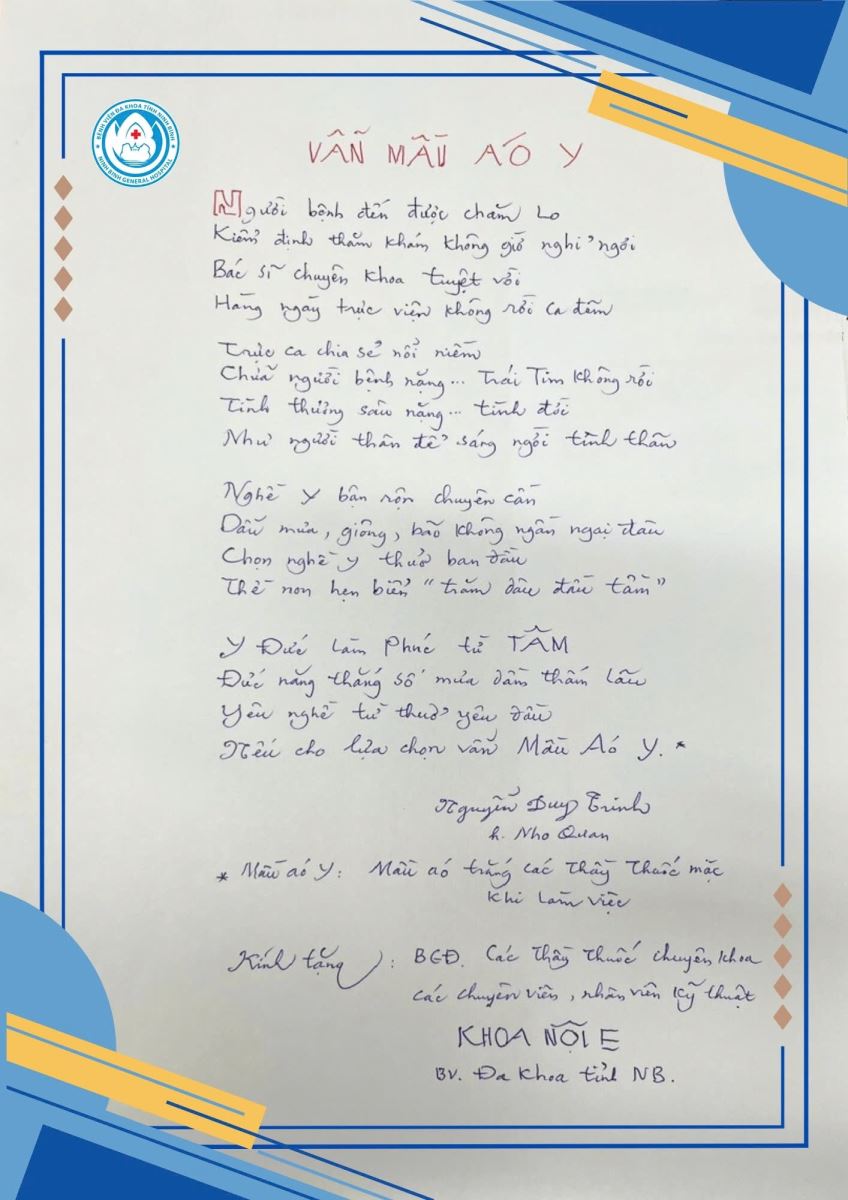 BỆNH VIỆN ĐA KHOA TỈNH NINH BÌNH
NINH BINH GENERAL HOSPITAL
VẪN MẦU ÁO Y
Người bệnh đến được chăm lo
Kiểm định thăm khám không giờ nghỉ ngơi
Bác sĩ chuyên khoa tuyệt vời
Hàng ngày trực viện không rời ca đêm
Trực ca chia sẻ nỗi niềm
Chữa người bệnh nặng... Trái Tim không rời
Tình thương sâu nặng... tình đời
Như người thân để sáng ngời tình thân
Nghề Y bận rộn chuyên cần
Dẫu mưa, giông, bão không ngần ngại đâu
Chọn nghề y thuở ban đầu
Thề non hẹn biển "trăm dâu đầu tằm"
Y Đức làm Phúc từ TÂM
Đức năng thắng số mưa dầm thấm lâu
Yêu nghề từ thuở yêu đầu
Nếu cho lựa chọn vẫn Mầu Áo Y. *
Nguyễn Duy Trinh
h. Nho Quan
* Mầu áo Y: Mầu áo trắng các Thầy Thuốc mặc
khi làm việc
Kính tặng: BGĐ. Các Thầy Thuốc chuyên khoa
các chuyên viên, nhân viên kỹ thuật
KHOA NỘI E
BV. Đa khoa tỉnh NB.